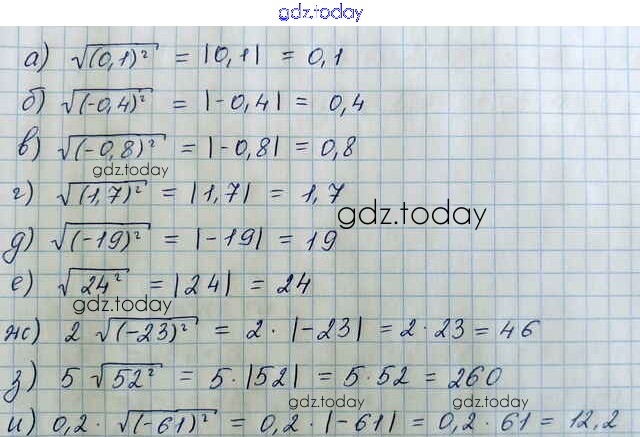 gdz.today
а) √(0,1)² = |0,1| = 0,1
б) √(-0,4)² = |-0,4| = 0,4
в) √(-0,8)² = |-0,8| = 0,8
gdz.today
г) √(1,7)² = |1,7| = 1,7
gdz.today
д) √(-19)² = |-19| = 19
е) √24² = |24| = 24
gdz.today
ж) 2 √(-23)² = 2 · |-23| = 2 · 23 = 46
з) 5 √52² = 5 · |52| = 5 · 52 = 260
gdz.today gdz.today
и) 0,2 · √(-61)² = 0,2 · |-61| = 0,2 · 61 = 12,2